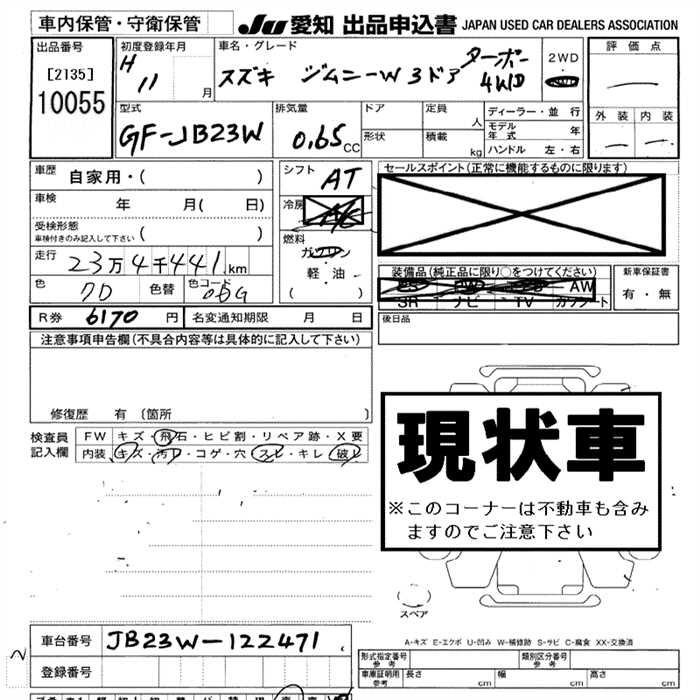 車内保管・守衛保管
JU 愛知 出品申込書 JAPAN USED CAR DEALERS ASSOCIATION
出品番号
[2135]
10055
初度登録年月
H 11 月
車名・グレード
スズキ ジムニーW 3ドア ターボー 4WD
2WD
評価点
外装 内装
型式
GF-JB23W
排気量
0.65 CC
ドア
形状
定員 人
積載 kg
ディーラー・並行
モデル年式 年
ハンドル 左・右
車歴 自家用・( )
車検 年 月( 日)
受検形態
車検付きのみ記入して下さい ( )
走行 23万4千441 km
色
色替
色コード
シフト AT
冷房
燃料
ガソリン
軽・油
( )
セールスポイント(正常に機能するものに限ります)
装備品(純正品に限り○をつけてください)
AW
SR ナビ TV
新車保証書
有・無
R券 6170 円
名変通知期限 月 日
後日品
注意事項申告欄(不具合内容等は具体的に記入して下さい)
修復歴 有 (箇所 )
検査員
記入欄
FW キズ・飛石・ヒビ割・リペア跡・X要
内装 キズ・汚レ・コゲ・穴・スレ・キレ・破レ
現状車
※このコーナーは不動車も含み
ますのでご注意下さい
スペア
A-キズ E-エクボ U-凹み W-補修跡 S-サビ C-腐食 XX-交換済
車台番号 JB23W-122471
登録番号
形式指定番号
参考
類別区分番号
参考
車庫証明用
参考
長さ cm 幅 cm 高さ cm